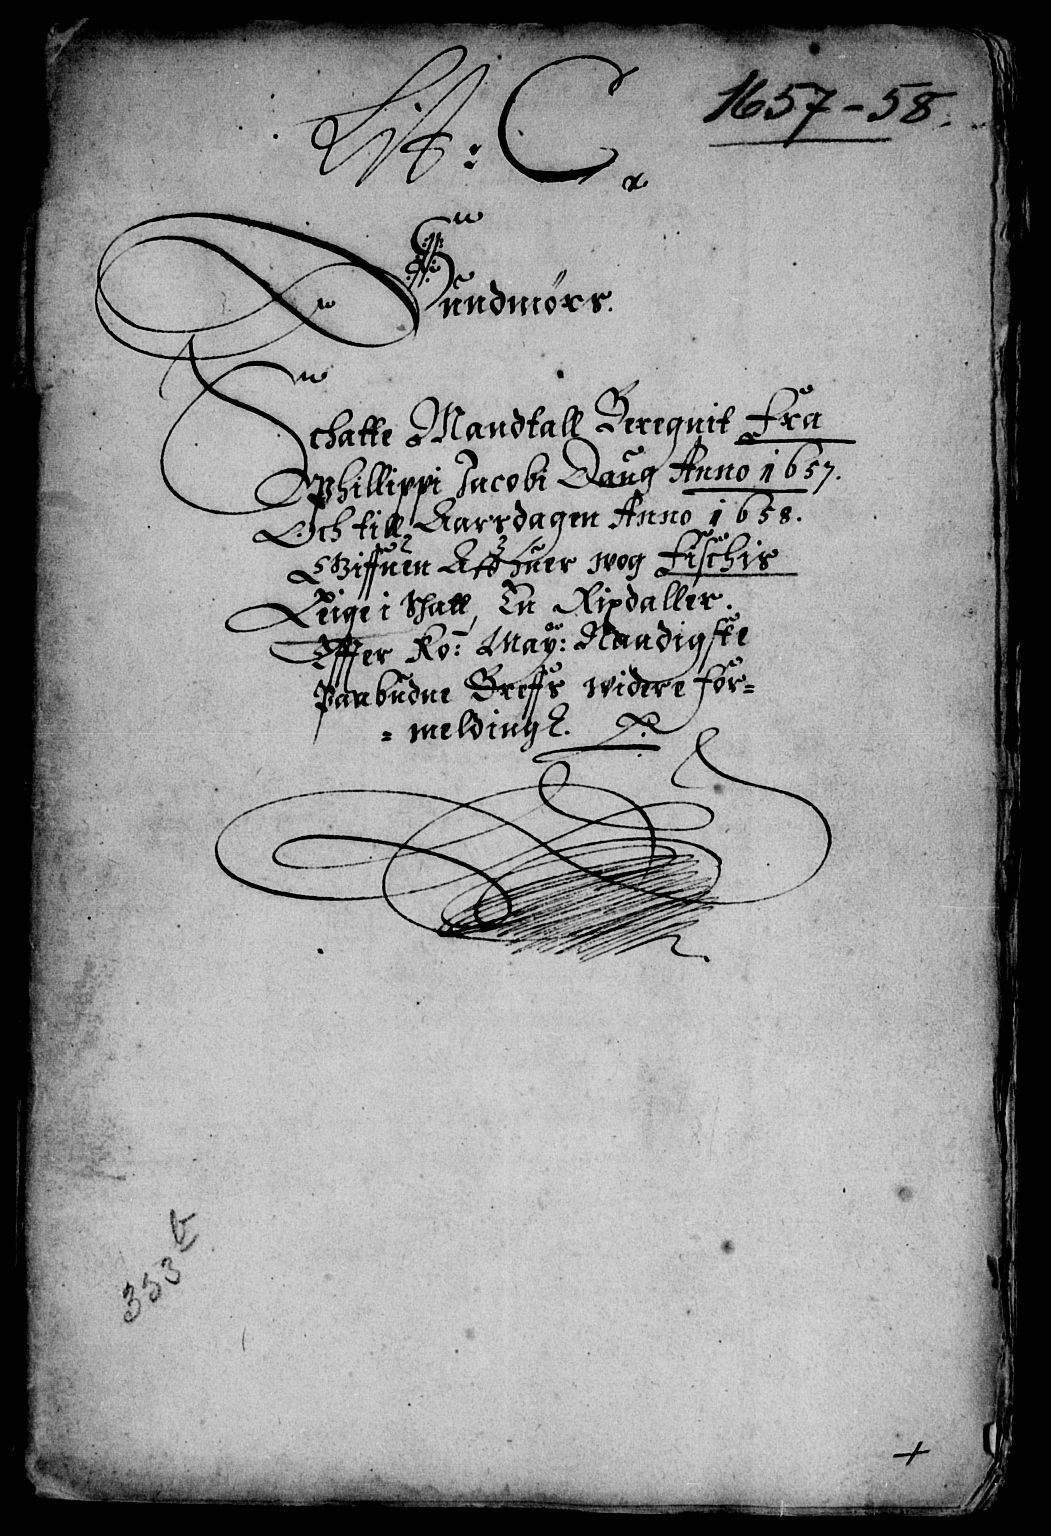 Lit: C.
1657-58.
Sundmörs.
Schatte Mandtall Beregnit Fra
Phillippi Jacobi Daug Anno 1657.
Och till Aarsdagen Anno 1658.
Giffuen Aff huer wog Fischis
Leige i Schatt, En Rixdaller.
Effter Ko: May: Naadigste
Paabudne Breffs widere for=
= melding.
353 b
+